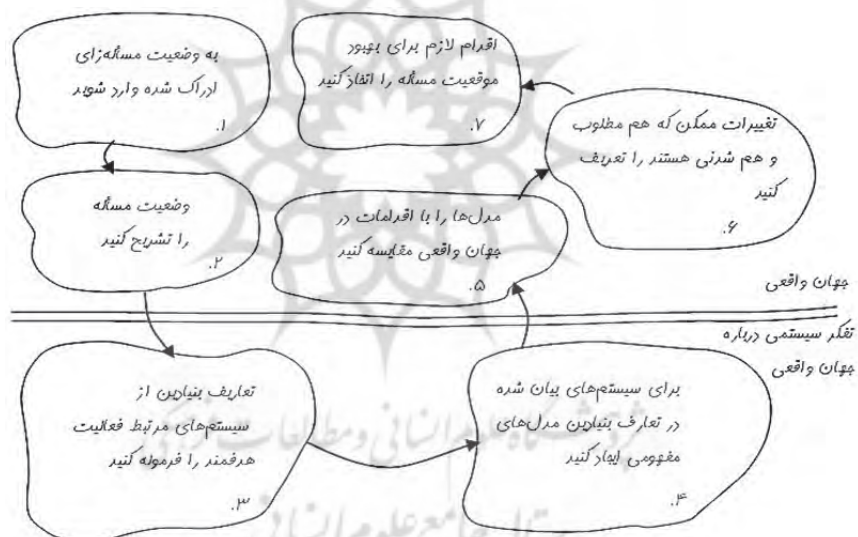 به وضعیت مسأله‌زای
ادراک شده وارد شوید
۱.
وضعیت مسأله
را تشریح کنید
۲.
تعاریف بنیادین از
سیستم‌های مرتبط فعالیت
هدفمند را فرموله کنید
۳.
برای سیستم‌های بیان شده
در تعارف بنیادین مدل‌های
مفهومی ایجاد کنید
۴.
مدل‌ها را با اقدامات در
جهان واقعی مقایسه کنید
۵.
تغییرات ممکن که هم مطلوب
و هم شدنی هستند را تعریف
کنید
۶.
اقدام لازم برای بهبود
موقعیت مسأله را اتخاذ کنید
۷.
جهان واقعی
تفکر سیستمی درباره
جهان واقعی
پژوهشگاه علوم انسانی و مطالعات فرهنگی
پرتال جامع علوم انسانی